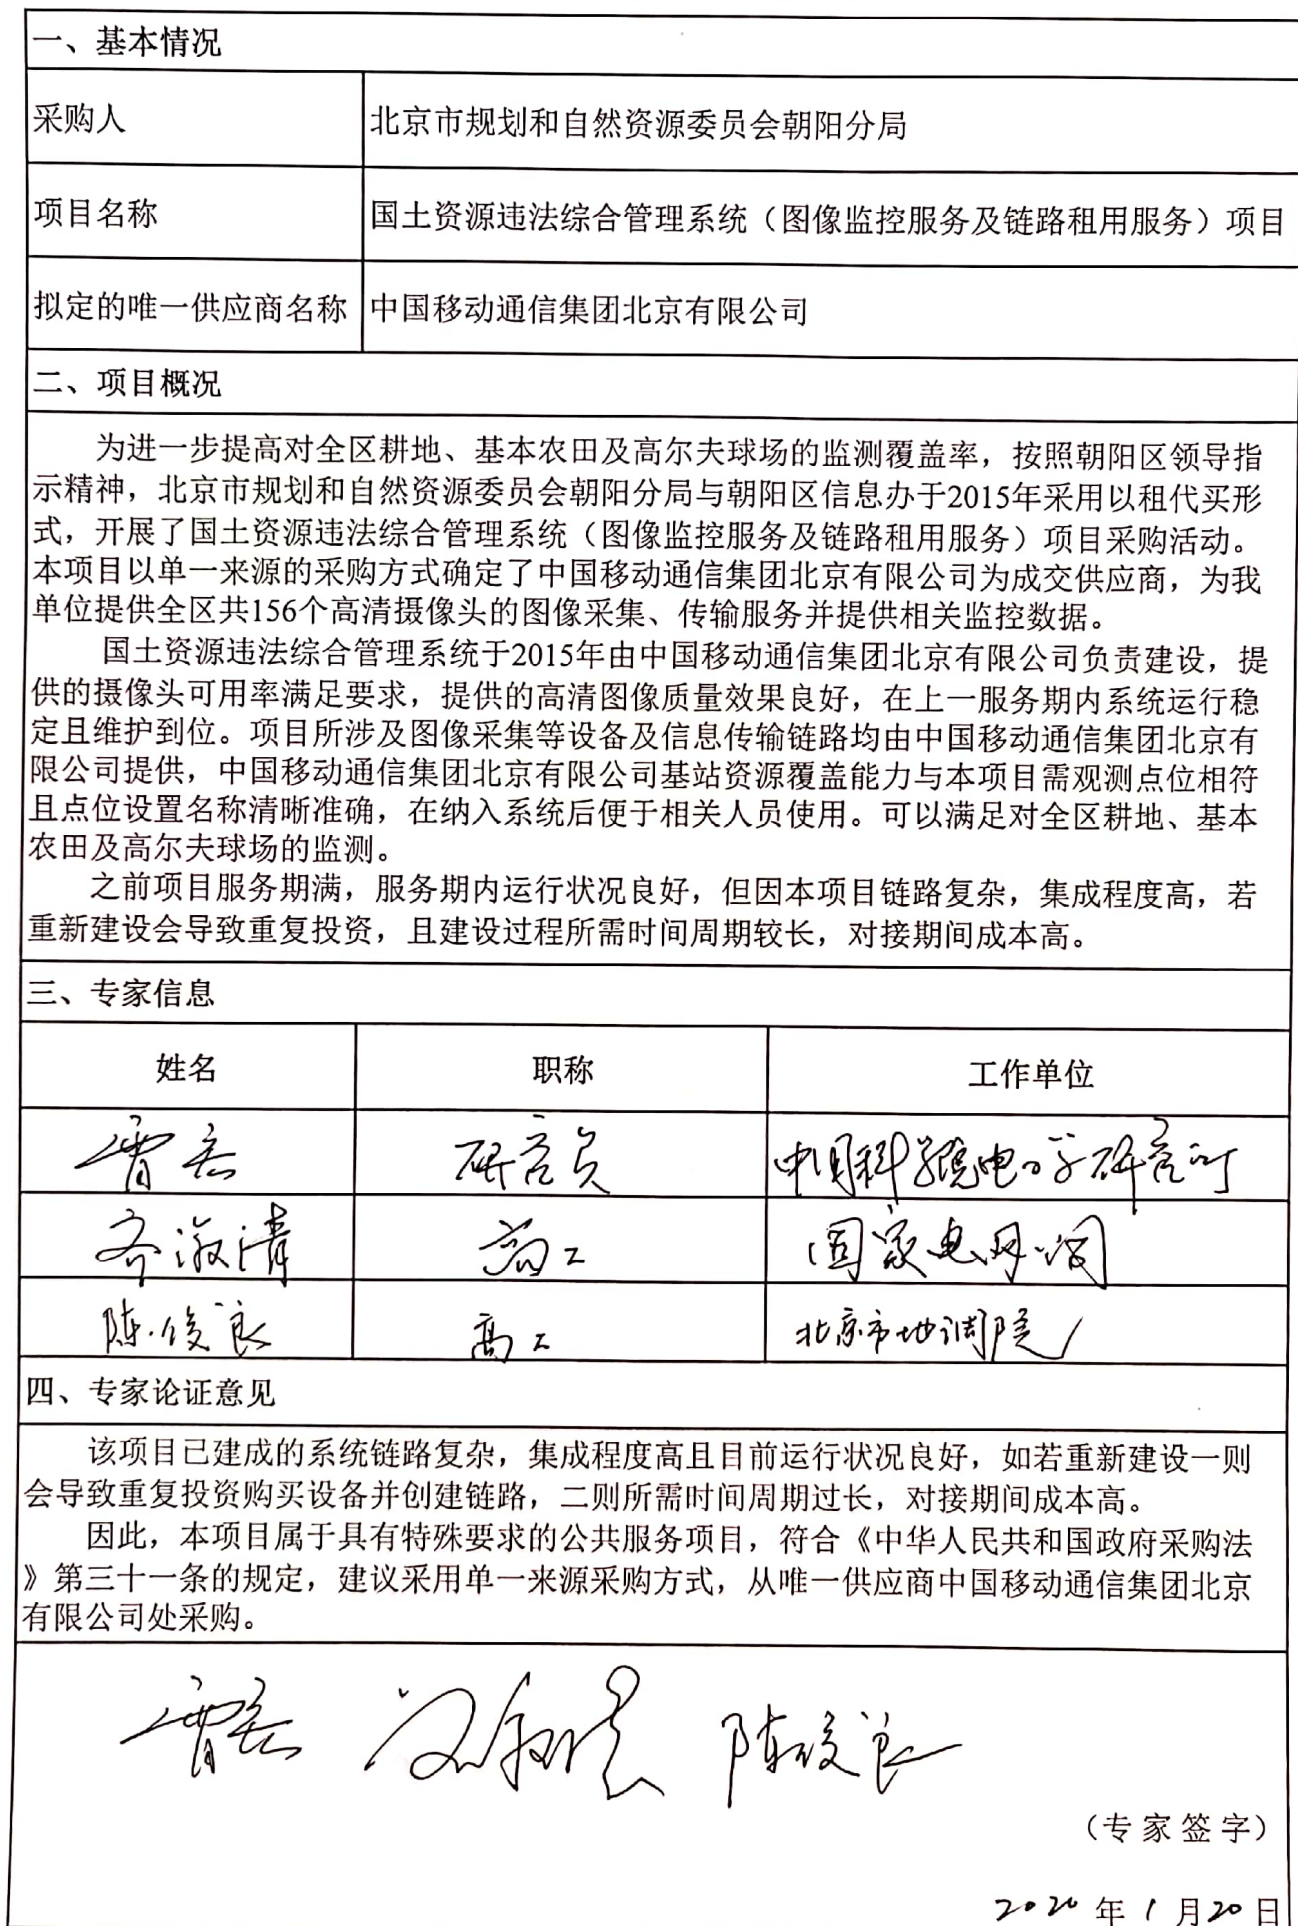 一、基本情况
采购人 北京市规划和自然资源委员会朝阳分局
项目名称 国土资源违法综合管理系统（图像监控服务及链路租用服务）项目
拟定的唯一供应商名称 中国移动通信集团北京有限公司
二、项目概况
为进一步提高对全区耕地、基本农田及高尔夫球场的监测覆盖率，按照朝阳区领导指
示精神，北京市规划和自然资源委员会朝阳分局与朝阳区信息办于2015年采用以租代买形
式，开展了国土资源违法综合管理系统（图像监控服务及链路租用服务）项目采购活动。
本项目以单一来源的采购方式确定了中国移动通信集团北京有限公司为成交供应商，为我
单位提供全区共156个高清摄像头的图像采集、传输服务并提供相关监控数据。
国土资源违法综合管理系统于2015年由中国移动通信集团北京有限公司负责建设，提
供的摄像头可用率满足要求，提供的高清图像质量效果良好，在上一服务期内系统运行稳
定且维护到位。项目所涉及图像采集等设备及信息传输链路均由中国移动通信集团北京有
限公司提供，中国移动通信集团北京有限公司基站资源覆盖能力与本项目需观测点位相符
且点位设置名称清晰准确，在纳入系统后便于相关人员使用。可以满足对全区耕地、基本
农田及高尔夫球场的监测。
之前项目服务期满，服务期内运行状况良好，但因本项目链路复杂，集成程度高，若
重新建设会导致重复投资，且建设过程所需时间周期较长，对接期间成本高。
三、专家信息
姓名 职称 工作单位
研究员 中国科学院电子学研究所
齐淑清 高工 国家电网公司
陈俊良 高工 北京市地调院
四、专家论证意见
该项目已建成的系统链路复杂，集成程度高且目前运行状况良好，如若重新建设一则
会导致重复投资购买设备并创建链路，二则所需时间周期过长，对接期间成本高。
因此，本项目属于具有特殊要求的公共服务项目，符合《中华人民共和国政府采购法
》第三十一条的规定，建议采用单一来源采购方式，从唯一供应商中国移动通信集团北京
有限公司处采购。
陈俊良
（专家签字）
2020年1月20日